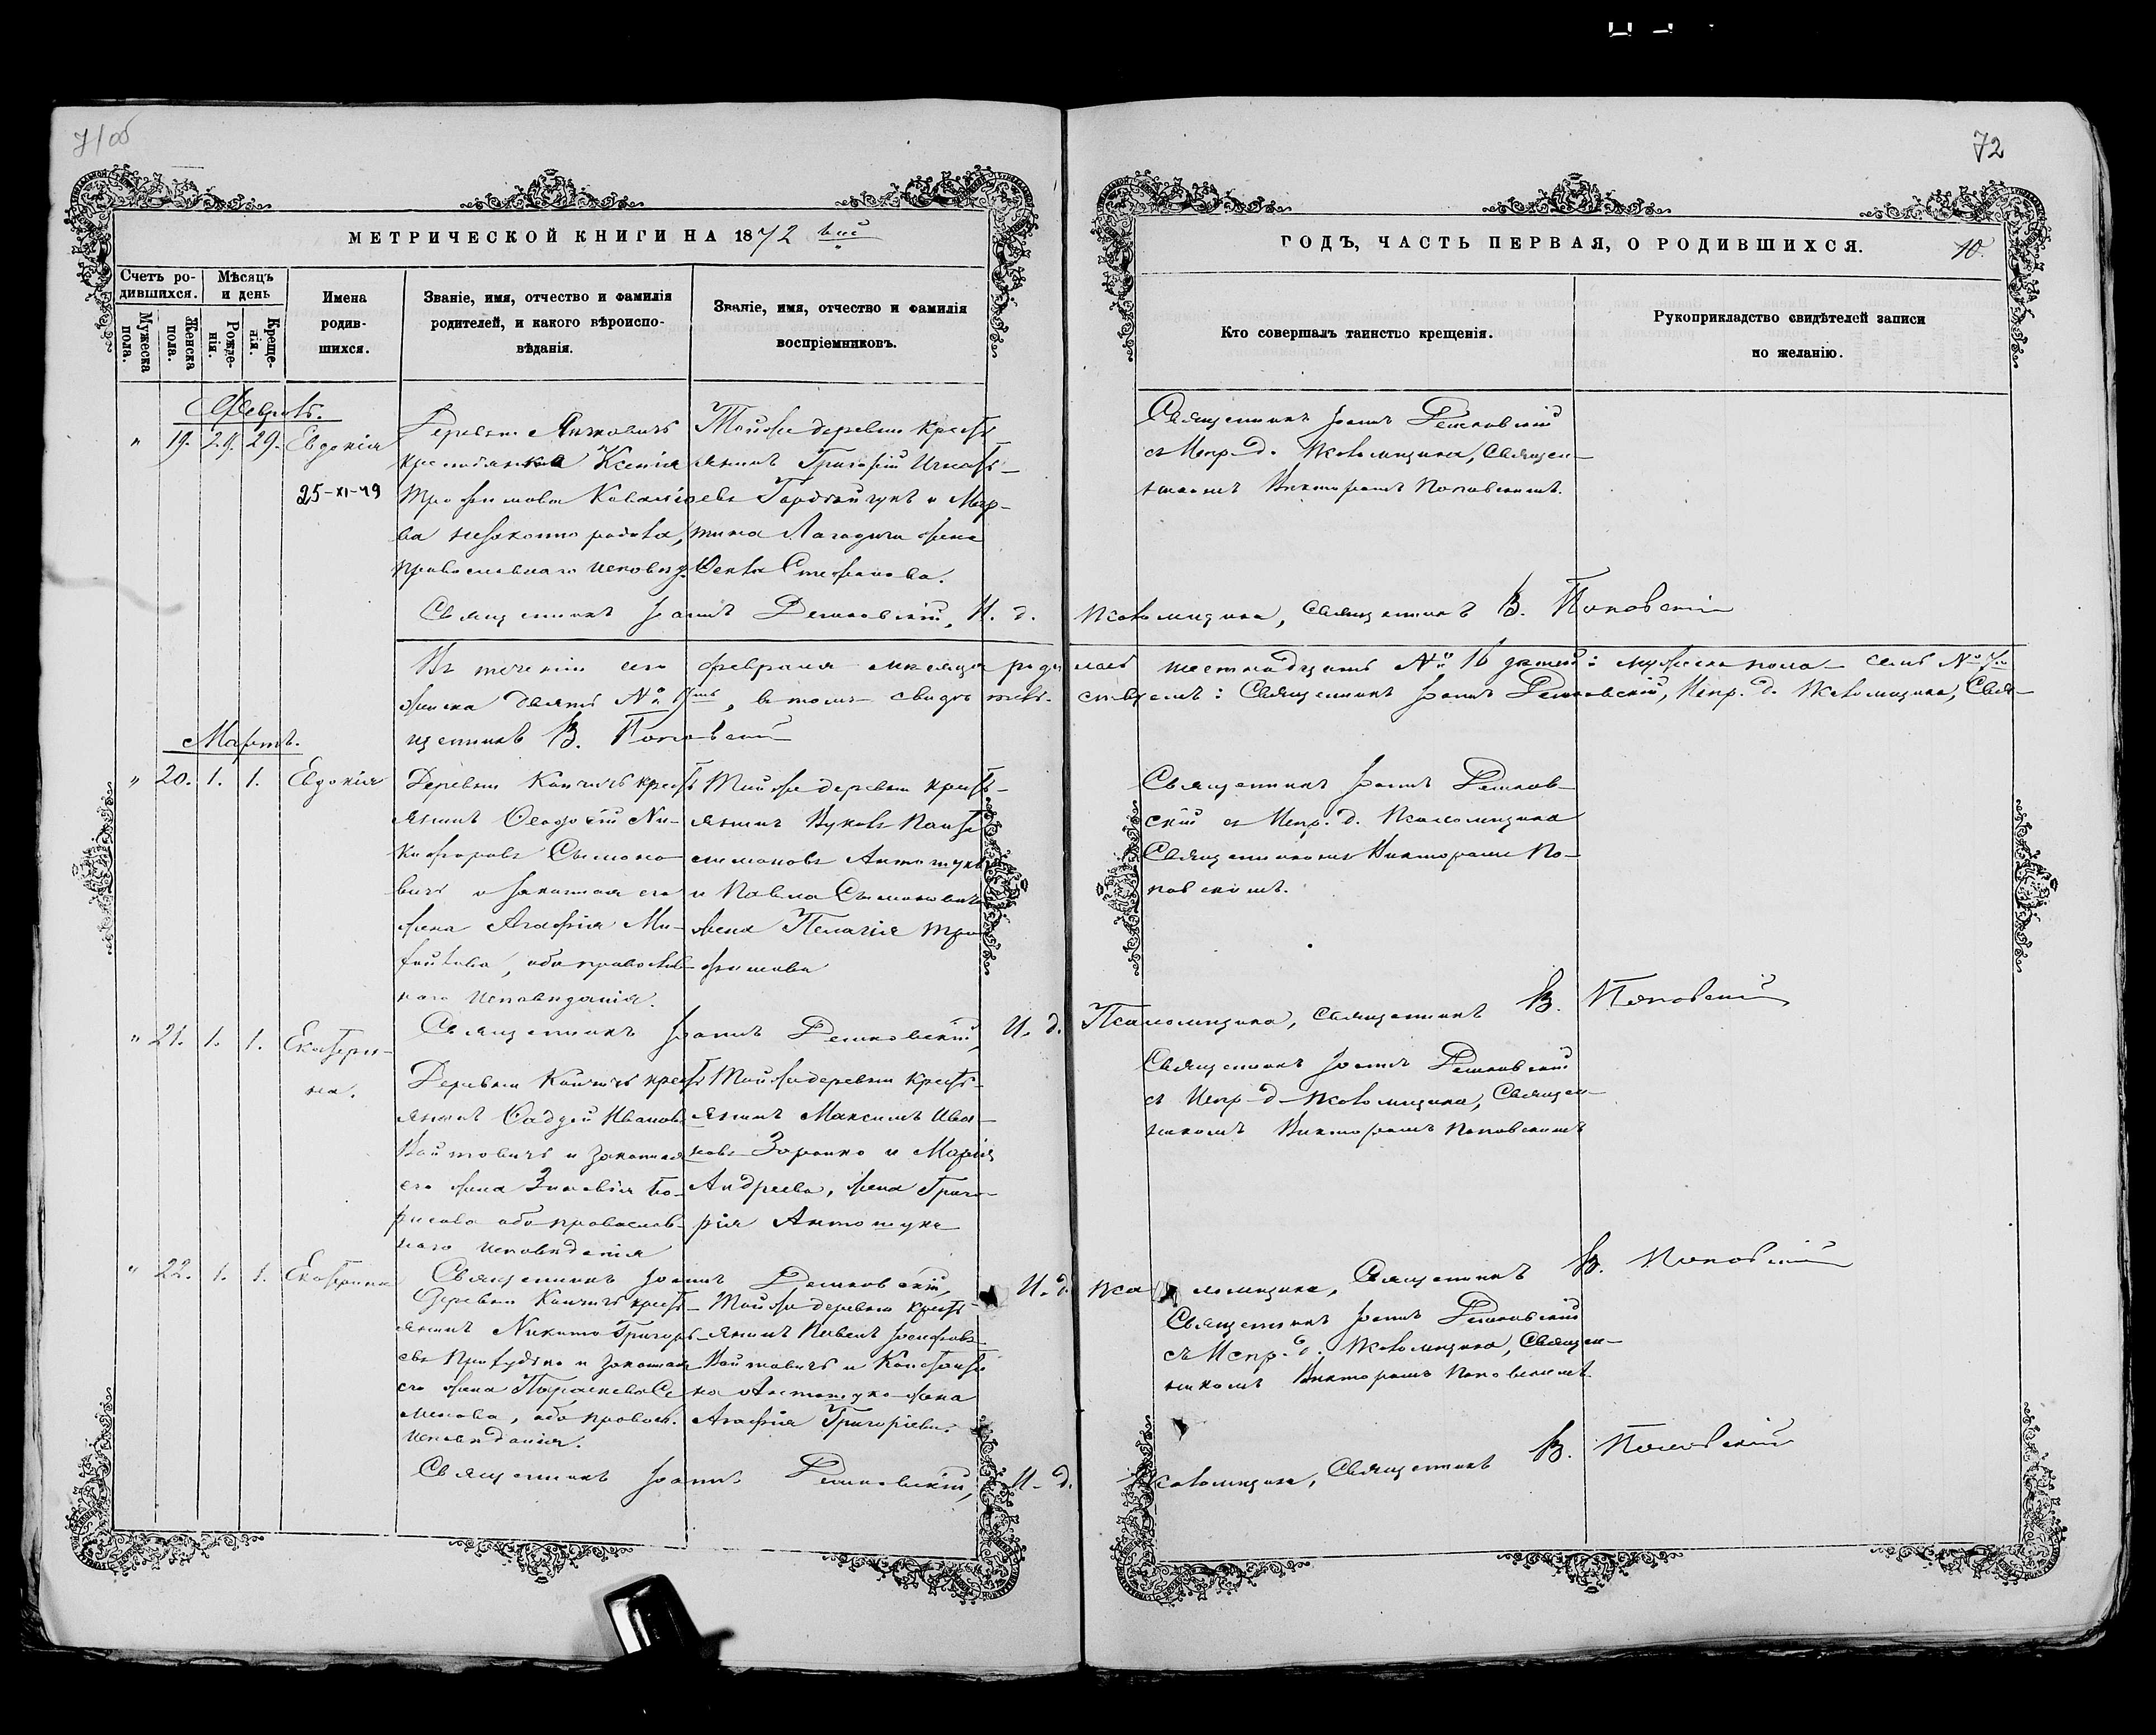 71об
72
МЕТРИЧЕСКОЙ КНИГИ НА 1872 вой
ГОДЪ, ЧАСТЬ ПЕРВАЯ, О РОДИВШИХСЯ.
10.
Счетъ ро-
дившихся.
Мѣсяцъ
и день
Мужеска
пола.
Женска
пола.
Рожде-
нія.
Креще-
нія.
Имена
родив-
шихся.
Званіе, имя, отчество и фамилія
родителей, и какого вѣроиспо-
вѣданія.
Званіе, имя, отчество и фамилія
воспріемниковъ.
Кто совершалъ таинство крещенія.
Рукоприкладство свидѣтелей записи
по желанію.
Февраль.
" 19. 29. 29. Евдокія
25-XI-49
Деревни
крестьянка Ксенія
Трофимова
ва незаконно родила,
православнаго исповѣд.
Той же деревни крест
янинъ Григорій Игнать-
евъ Гордѣйчукъ и Мар-
тина жена
Стефанова.
Священникъ Іоаннъ
съ Испр. д. Псаломщика, Священ-
никомъ Викторомъ Поповскимъ.
Священникъ Іоаннъ И. д. Псаломщика, Священникъ В. Поповскій
Въ теченіи сего февраля мѣсяца родилось шестнадцать № 16 дѣтей: мужеска пола семь № 7
женска девять № 9, въ томъ свидѣтельствуемъ: Священникъ Іоаннъ Испр. д. Псаломщика, Свя-
щенникъ В. Поповскій
Мартъ.
" 20. 1. 1. Евдокія
Деревни крест
янинъ Ѳеодосій Ни-
кифоровъ Сымоно-
вичъ и законная его
жена Агафія Ми-
, оба православ-
наго исповѣданія.
Той же деревни крест-
янинъ
Антонюкъ
и Павла Сымоновича
жена Пелагія Тро-
фимова
Священникъ Іоаннъ
скій съ Испр. д. Псаломщика
Священникомъ Викторомъ По-
повскимъ.
Священникъ Іоаннъ И. д. Псаломщика, Священникъ В. Поповскій
" 21. 1. 1. Екатери-
на.
Деревни крест
янинъ Фаддей Ивановъ
Войтовичъ и законная
его жена Зиновія Бо-
рисова оба православ-
наго исповѣданія
Той же деревни крест-
янинъ Максимъ Ива-
новъ и Марія
Андреева, жена Григо-
рія Антонюка
Священникъ Іоаннъ
съ Испр. д. Псаломщика, Священ-
никомъ Викторомъ Поповскимъ
Священникъ Іоаннъ И. д. Псаломщика, Священникъ В. Поповскій
" 22. 1. 1. Екатерина
Деревни крест-
янинъ Никита Григорь-
евъ и законная
его жена Параскева Се-
менова, оба правосл.
исповѣданія.
Той же деревни крест-
янинъ Павелъ Іосифовъ
Войтовичъ и Константи-
на Антонюка жена
Агафія Григорьева.
Священникъ Іоаннъ
съ Испр. д. Псаломщика, Священ-
никомъ Викторомъ Поповскимъ.
Священникъ Іоаннъ И. д. Псаломщика, Священникъ В. Поповскій